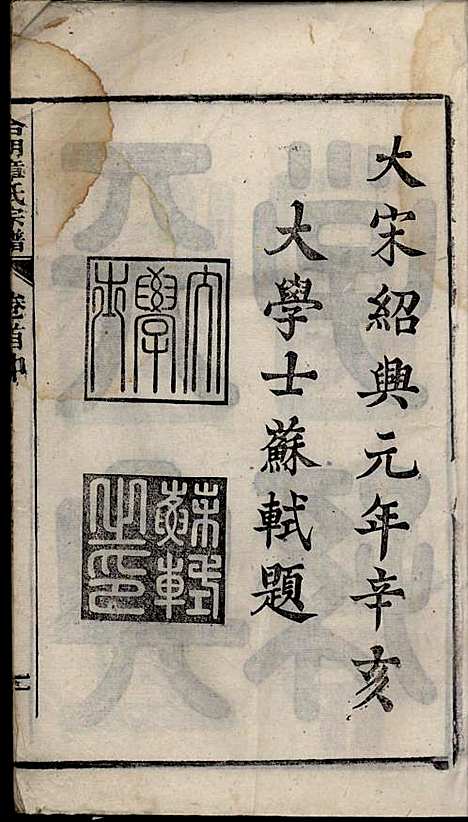 大宋紹興元年辛亥
大學士蘇軾題
大學士
蘇軾之印
合明章氏宗譜
卷首中